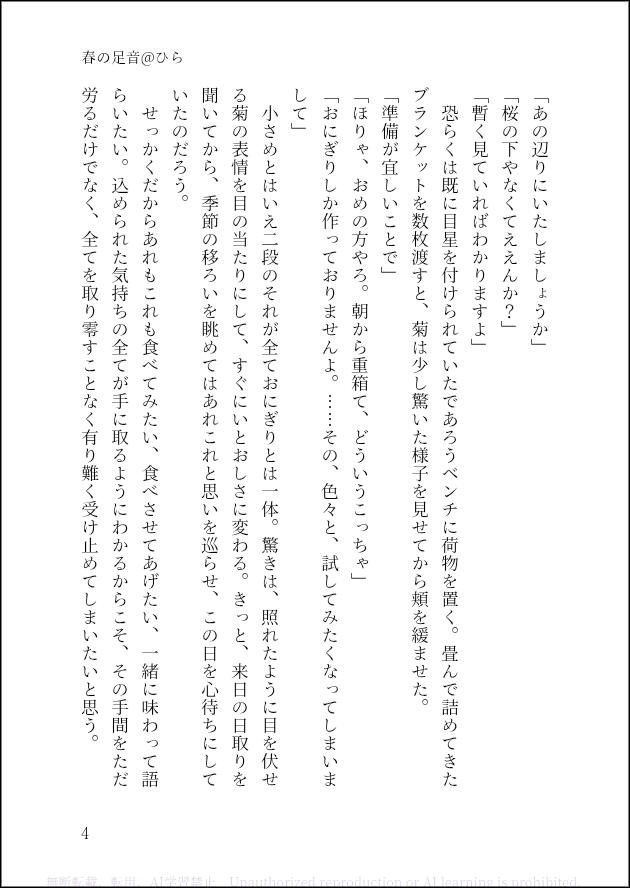 春の足音@ひら
「あの辺りにいたしましょうか」
「桜の下やなくてええんか？」
「暫く見ていればわかりますよ」
　恐らくは既に目星を付けられていたであろうベンチに荷物を置く。畳んで詰めてきた
ブランケットを数枚渡すと、菊は少し驚いた様子を見せてから頬を緩ませた。
「準備が宜しいことで」
「ほりゃ、おめの方やろ。朝から重箱て、どういうこっちゃ」
「おにぎりしか作っておりませんよ。……その、色々と、試してみたくなってしまいま
して」
　小さめとはいえ二段のそれが全ておにぎりとは一体。驚きは、照れたように目を伏せ
る菊の表情を目の当たりにして、すぐにいとおしさに変わる。きっと、来日の日取りを
聞いてから、季節の移ろいを眺めてはあれこれと思いを巡らせ、この日を心待ちにして
いたのだろう。
　せっかくだからあれもこれも食べてみたい、食べさせてあげたい、一緒に味わって語
らいたい。込められた気持ちの全てが手に取るようにわかるからこそ、その手間をただ
労るだけでなく、全てを取り零すことなく有り難く受け止めてしまいたいと思う。
4
無断転載、転用、AI学習禁止　Unauthorized reproduction or AI learning is prohibited.